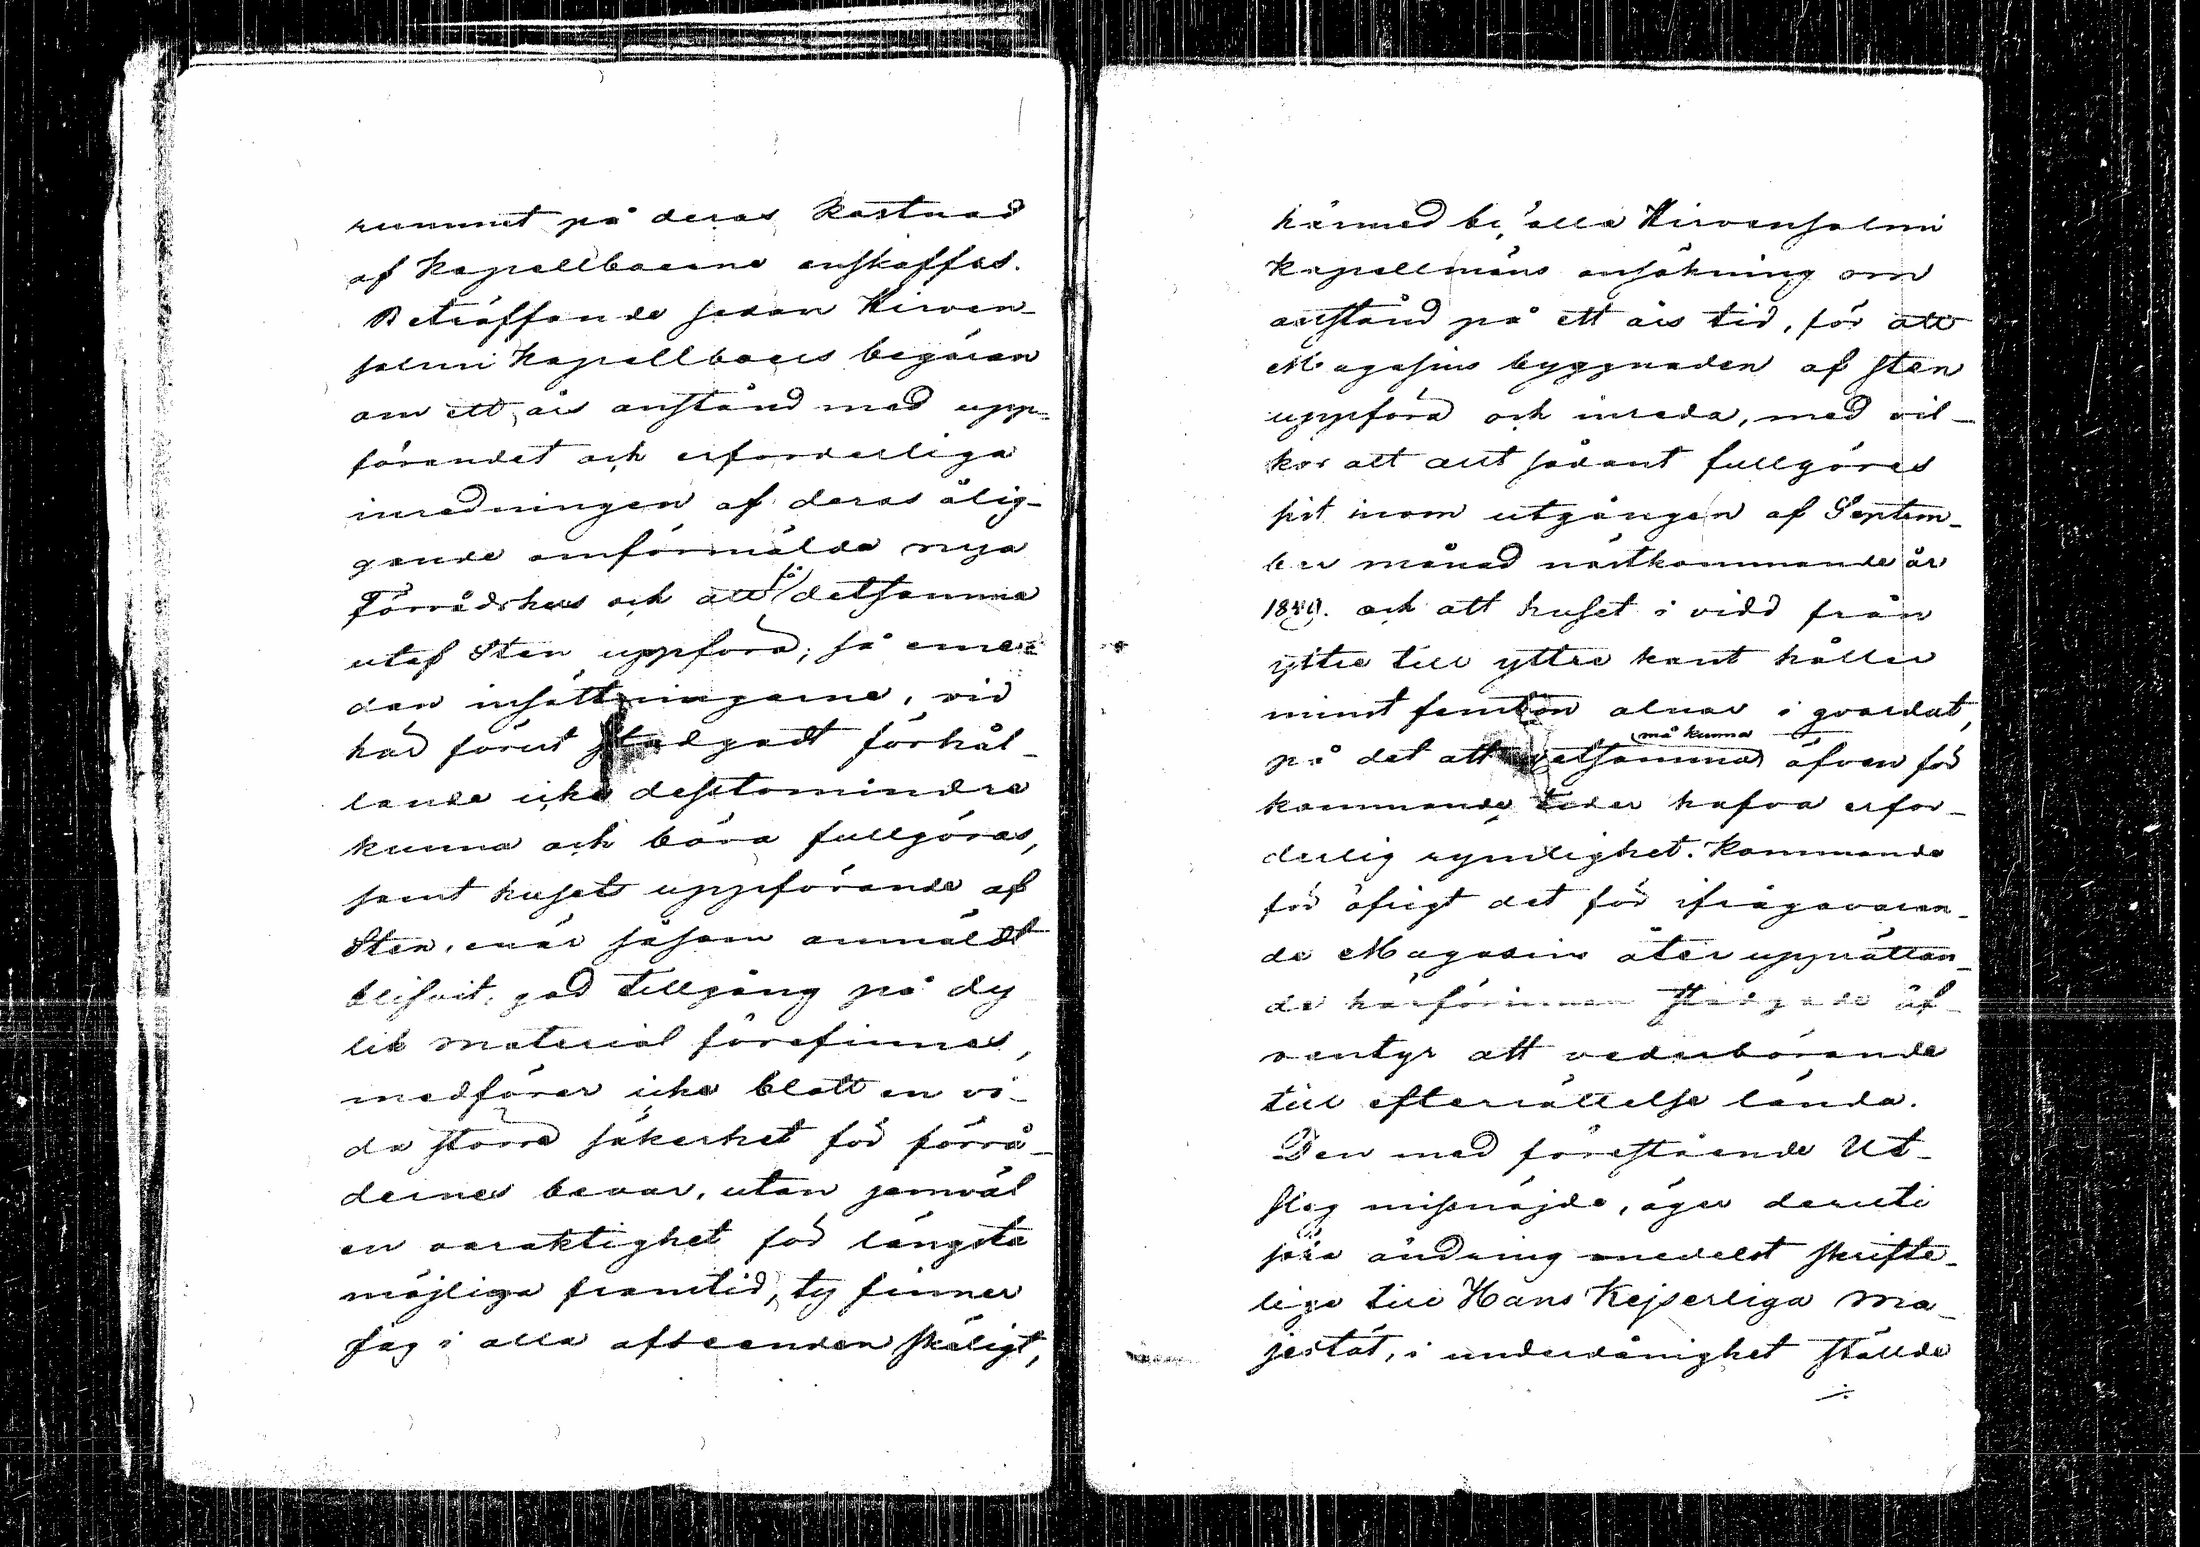 rummet på deras kostnad
af Kapellboerne anskaffas.
Beträffande sedan Hirven-
salmi Kapellboers begäran
om ett års anstånd med upp-
förandet och erforderliga
inredningen af deras ålig-
gande omförmälda nya
Förrådshus och att få detsamma
utaf Sten uppföra; så eme-
dan insättningarne, vid
här förut stadgadt förhål-
lande icke desstomindre
kunna och böra fullgöras,
samt husets uppförande af
Sten, enär såsom anmäldt
blifvit, god tillgång på dy
lik material förefinnes,
medförer icke blott en vi-
da större säkerhet för förrå-
dernes bevar, utan jemväl
en varaktighet för längsta
möjliga framtid, ty finner
Jag i alla afseenden skäligt,
härmed bifalla Hirvensalmi
Kapellmäns ansökning om
anstånd på ett års tid, för att
Magasins byggnaden af Sten
uppföra och inreda, med vil-
kor att allt sådant fullgöres
sist inom utgången af Septem-
ber månad nästkommande år
och att huset i vidd från
yttre till yttre kant håller
minst femton alnar i qvardat,
på det att detsamma må kunna äfven för
kommande tider hafva erfor-
derlig rymlighet. Kommande
för öfrigt det för ifrågavaran-
de Magasins återupprättan-
de härförinnan stadgade äf-
ventyr att vederbörande
till efterrättelse lända.
Den med förestående Ut-
slag missnöjde, äger deruti
söka ändring medelst skrifte-
liga till Hans Kejserliga Ma-
jestät, i underdånighet ställde